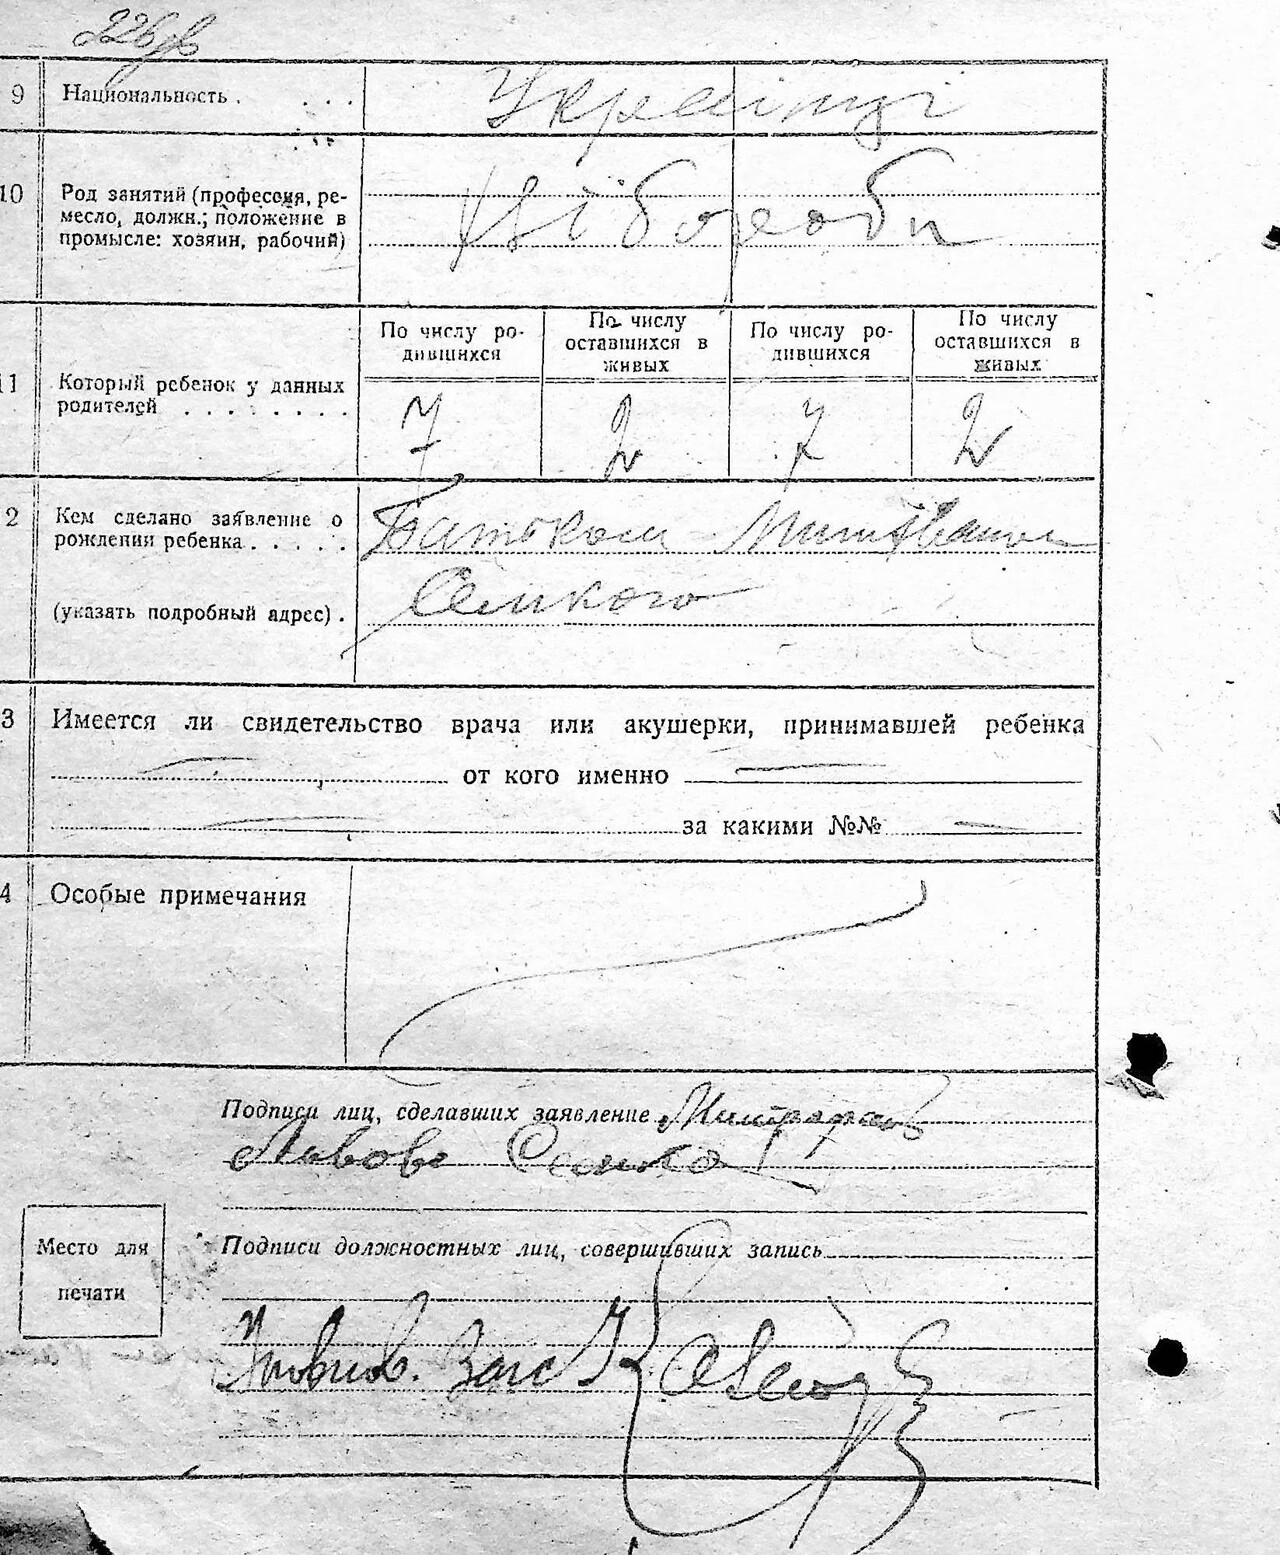 226
9 Национальность . . . . Українці
10 Род занятий (профессия, ре-
месло, должн.; положение в
промысле: хозяин, рабочий)
хлібороби
По числу ро-
дившихся
По числу
оставшихся в
живых
По числу ро-
дившихся
По числу
оставшихся в
живых
11 Который ребенок у данных
родителей . . . . . . . .
7 2 7 2
2 Кем сделано заявление о
рождении ребенка . . . . .
Батьком
(указать подробный адрес) .
3 Имеется ли свидетельство врача или акушерки, принимавшей ребенка
от кого именно
за какими №№
4 Особые примечания
Подписи лиц, сделавших заявление
Место для
печати
Подписи должностных лиц, совершивших запись
Загс